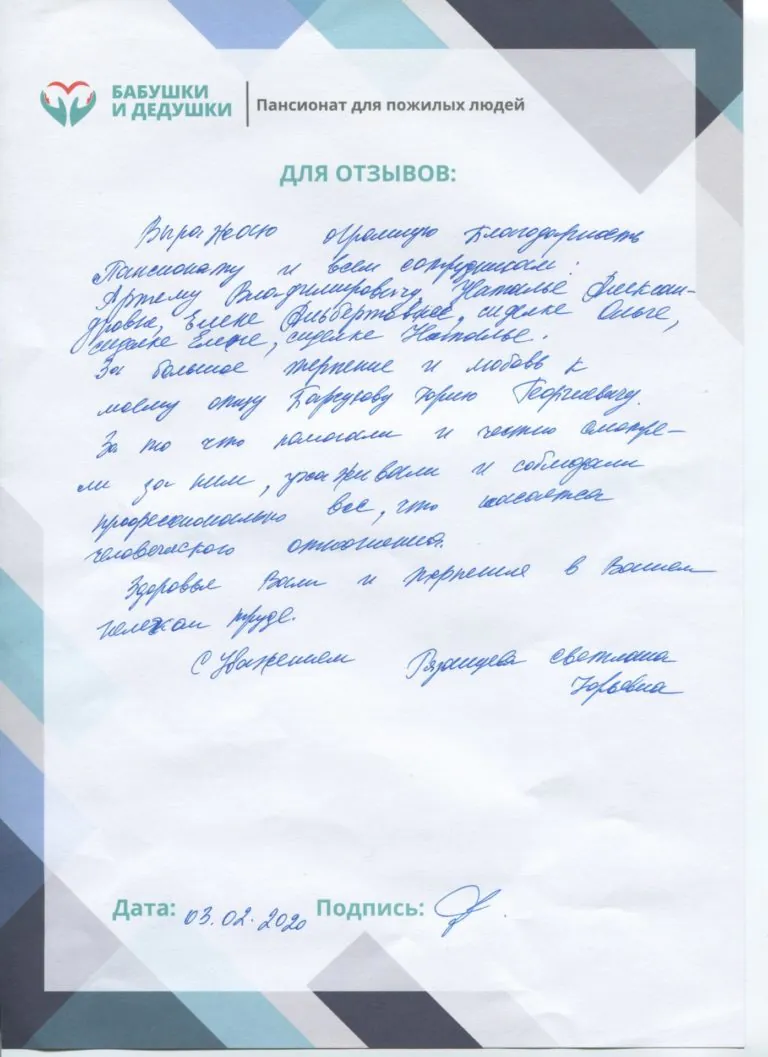 БАБУШКИ
И ДЕДУШКИ
Пансионат для пожилых людей
ДЛЯ ОТЗЫВОВ:
Выражаю огромную благодарность
Пансионату и всем сотрудникам:
Артему Владимировичу, Наталье Алексан-
дровне, Елене Альбертовне, сиделке Ольге,
сиделке Елене, сиделке Наталье.
За большое терпение и любовь к
моему отцу Юрию Георгиевичу.
За то что помогали и честно смотре-
ли за ним, ухаживали и соблюдали
профессионально все, что касается
человеческого отношения.
Здоровья Вам и терпения в Вашем
труде.
С Уважением Рязанцева Светлана
Юрьевна
Дата: 03.02.2020 Подпись: